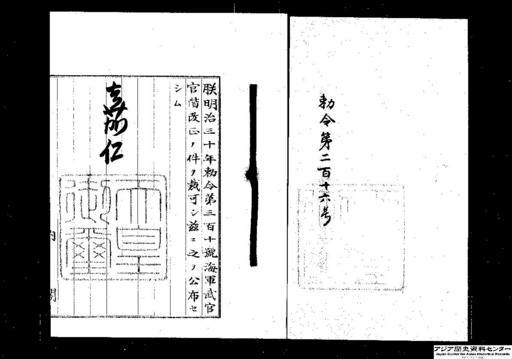 勅令第二百十六号
朕明治三十年勅令第三百十號海軍武官
官階改正ノ件ヲ裁可シ茲ニ之ヲ公布セ
シム
嘉仁
天皇
御璽
内閣
アジア歴史資料センター
Japan Center for Asian Historical Records